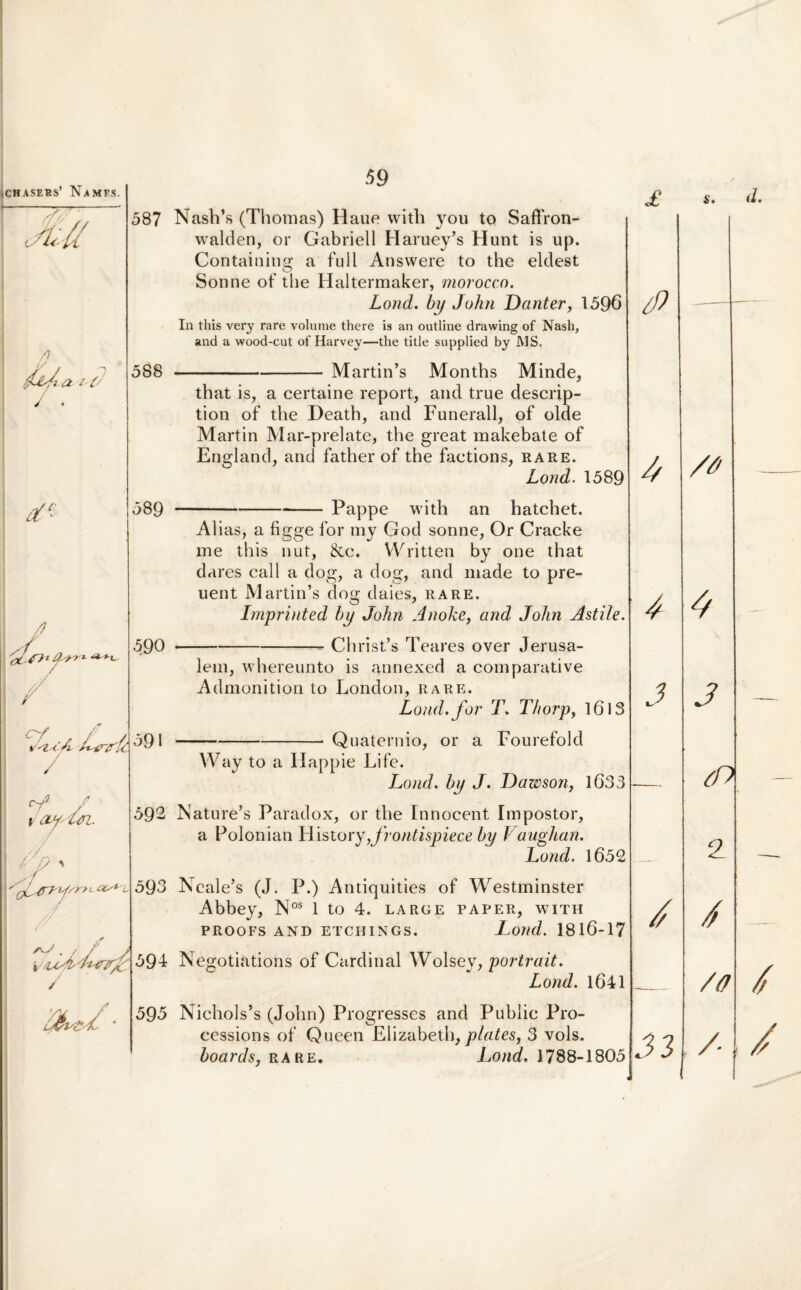 59
CHASERS' NAMES.
£ s. d.
Hill
587 Nash's (Thomas) Haue with you to Saffron-
walden, or Gabriell Haruey's Hunt is up.
Containing a full Answere to the eldest
Sonne of the Haltermaker, morocco.
Lond. by John Danter, 1596
In this very rare volume there is an outline drawing of Nash,
and a wood-cut of Harvey—the title supplied by MS.
588 ——— Martin's Months Minde,
that is, a certaine report, and true descrip-
tion of the Death, and Funerall, of olde
Martin Mar-prelate, the great makebate of
England, and father of the factions, RARE.
Lond. 1589 4 10
589 ——— Pappe with an hatchet.
Alias, a figge for my God sonne, Or Cracke
me this nut, &c. Written by one that
dares call a dog, a dog, and made to pre-
uent Martin's dog daies, RARE.
Imprinted by John Anoke, and John Astile. 4 4
590 ——— Christ's Teares over Jerusa-
lem, whereunto is annexed a comparative
Admonition to London, RARE.
Lond. for T. Thorp, 1613 3 3 —
591 ——— Quaternio, or a Fourefold
Way to a Happie Life.
Lond. by J. Dawson, 1633
592 Nature's Paradox, or the Innocent Impostor,
a Polonian History, frontispiece by Vaughan.
Lond. 1652 2 —
593 Neale's (J. P.) Antiquities of Westminster
Abbey, Nos 1 to 4. LARGE PAPER, WITH
PROOFS AND ETCHINGS. Lond. 1816-17
594 Negotiations of Cardinal Wolsey, portrait.
Lond. 1641 — 10 6
595 Nichols's (John) Progresses and Public Pro-
cessions of Queen Elizabeth, plates, 3 vols.
boards, RARE. Lond. 1788-1805 33